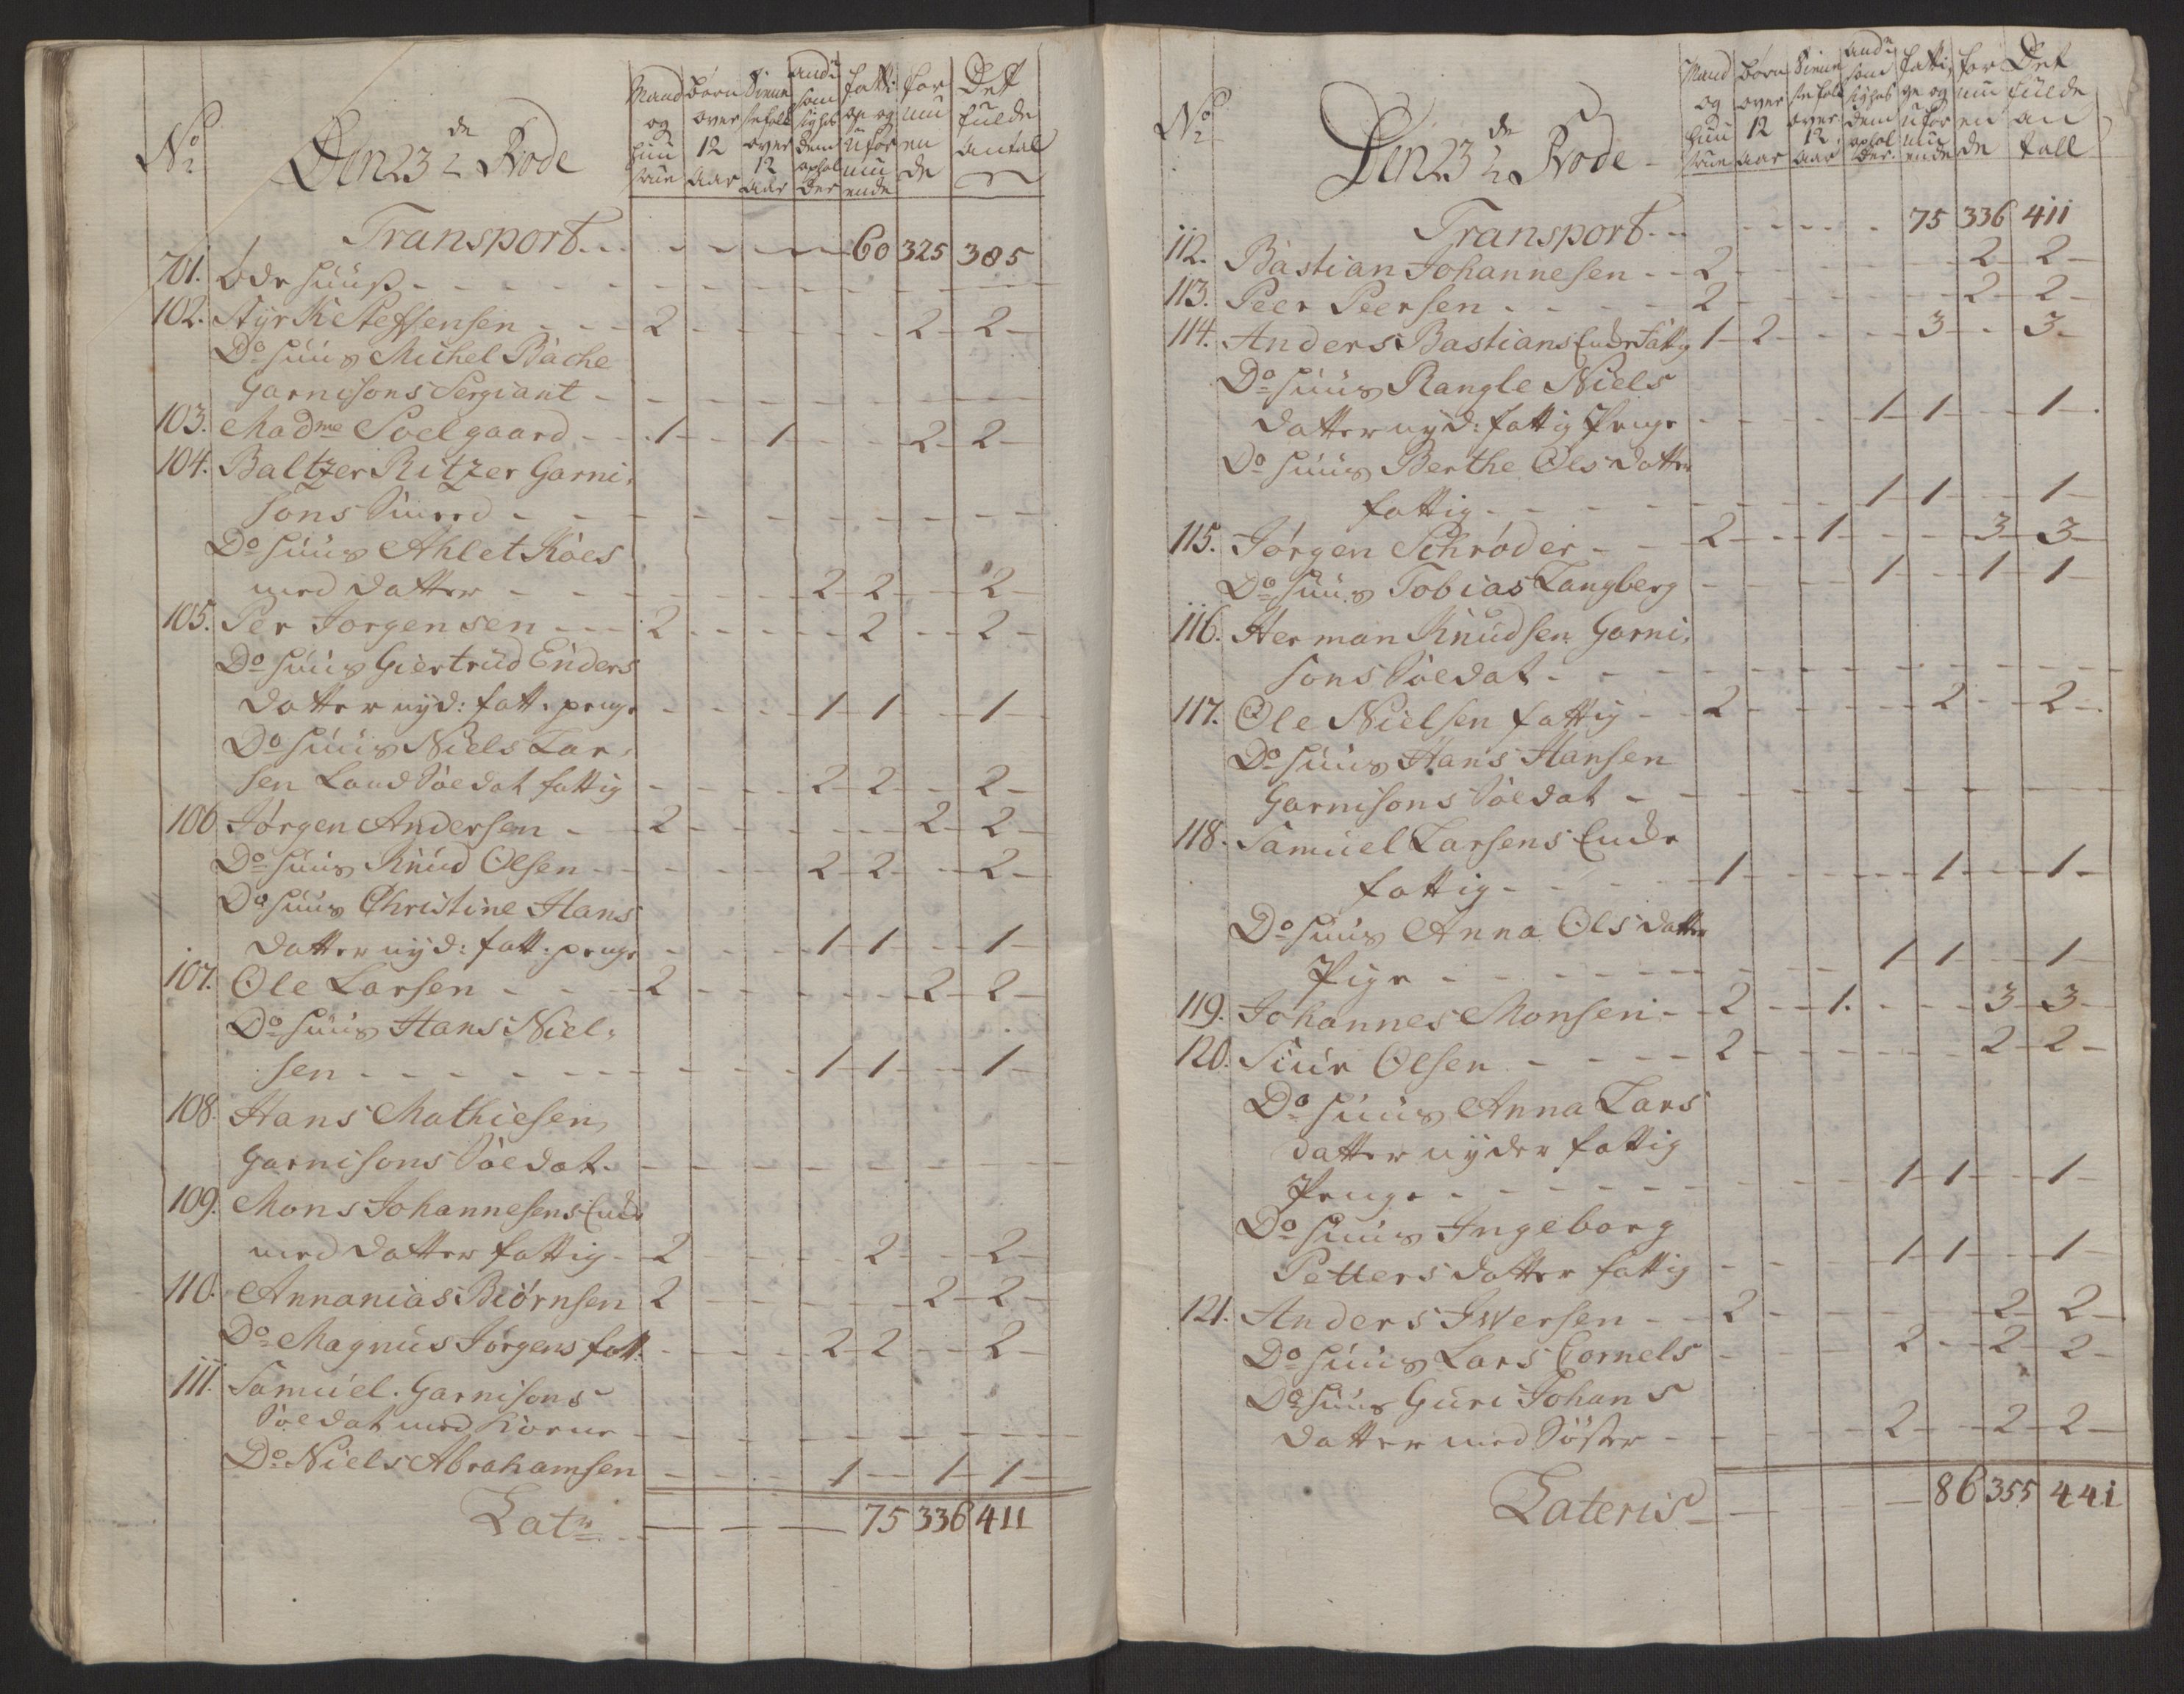 No
Den 23de 1/2 Rode
Mand og Huustrue
Børn over 12 Aar
Tienestefolk over 12 Aar
Andre som sig hos dem opholder
fattige og uformuende
formuende
Det fulde antal
Transport - - - - 60 325 385
701. Øde Huuß - - - -
102. Styrk Steffensen - - - 2 - - - - 2 - 2 -
Do Huus Michel Bache
Garnisons Sergiant - - - -
103. Madme Soelgaard - - 1 - - 1 - - - 2 - 2 -
104. Baltzer Ritzer Garni-
sons Smeed - - - -
Do Huus Ahlet Roes
med datter - - - - 2 - 2 - - 2 -
105. Per Jorgensen - - - 2 - - - - 2 - - 2 -
Do Huus Giertrud Enders
datter nyd: fatt: penge - - - 1 - 1 - - 1 -
Do Huus Niels Lar-
sen Land Soldat fattig - - - - 2 - 2 - - 2 -
106 Jørgen Andersen - - 2 - - - - - 2 - 2 -
Do Huus Knud Olsen - - - - 2 - 2 - - 2 -
Do Huus Christine Hans
datter nyd: fatt: penge - - - 1 - 1 - - 1 -
107. Ole Larsen - - - 2 - - - - 2 - 2 -
Do Huus Hans Niel-
sen - - - - - - 1 - 1 - - 1 -
108. Hans Mathiesen
Garnisons Soldat - - - -
109. Mons Johannesens Encke
med datter fattig - 2 - - - 2 - - 2 -
110. Annanias Biørnsen 2 - - - - 2 - 2 -
Do Magnus Jörgens fatt: - - - 2 - 2 - - 2 -
111. Samuel Garnisons
Soldat med Kone - - - -
Do Niels Abrahamsen - - - 1 - - 1 - 1 -
Latr - - - 75 336 411
No
Den 23de 1/2 Rode -
Mand og Huustrue
Børn over 12 Aar
Tienestefolk over 12 Aar
Andre som sig hos dem opholder
fattige og uformuende
formuende
Det fulde antall
Transport - - - - - 75 336 411
112. Bastian Johannesen - - 2 - - - - 2 - 2 -
113. Peer Peersen - - - - 2 - - - - 2 - 2 -
114. Anders Bastians Encke fattig 1 - 2 - - - 3 - - 3 -
Do Huus Rangle Niels
datter nyd: fattig Penge - - - 1 - 1 - - 1 -
Do Huus Berthe Ols datter
fattig - - - - - 1 - 1 - - 1 -
115. Jørgen Schrøder - - 2 - - 1 - - - 3 - 3 -
Do Huus Tobias Langberg - - - 1 - - 1 - 1 -
116. Herman Knudsen Garni-
sons Soldat - - - -
117. Ole Nielsen fattig - - 2 - - - - 2 - - 2 -
Do Huus Hans Hansen
Garnisons Soldat - - - -
118. Samuel Larsens Encke
fattig - - - - 1 - - - - 1 - - 1 -
Do Huus Anna Ols datter
Pige - - - - - - 1 - 1 - - 1 -
119. Johannes Monsen - - 2 - - 1. - - - 3 - 3 -
120. Siur Olsen - - - - 2 - - - - 2 - 2 -
Do Huus Anna Lars
datter nyder fattig
Penge - - - - - - 1 - 1 - - 1 -
Do Huus Ingeborg
Petters datter fattig - - - 1 - 1 - - 1 -
121. Anders Iwersen - - 2 - - - - 2 - 2 -
Do Huus Lars Cornels - - - 2 - - 2 - 2 -
Do Huus Guri Johans
datter med Söster - - - - 2 - - 2 - 2 -
Lateris - - - 86 355 441